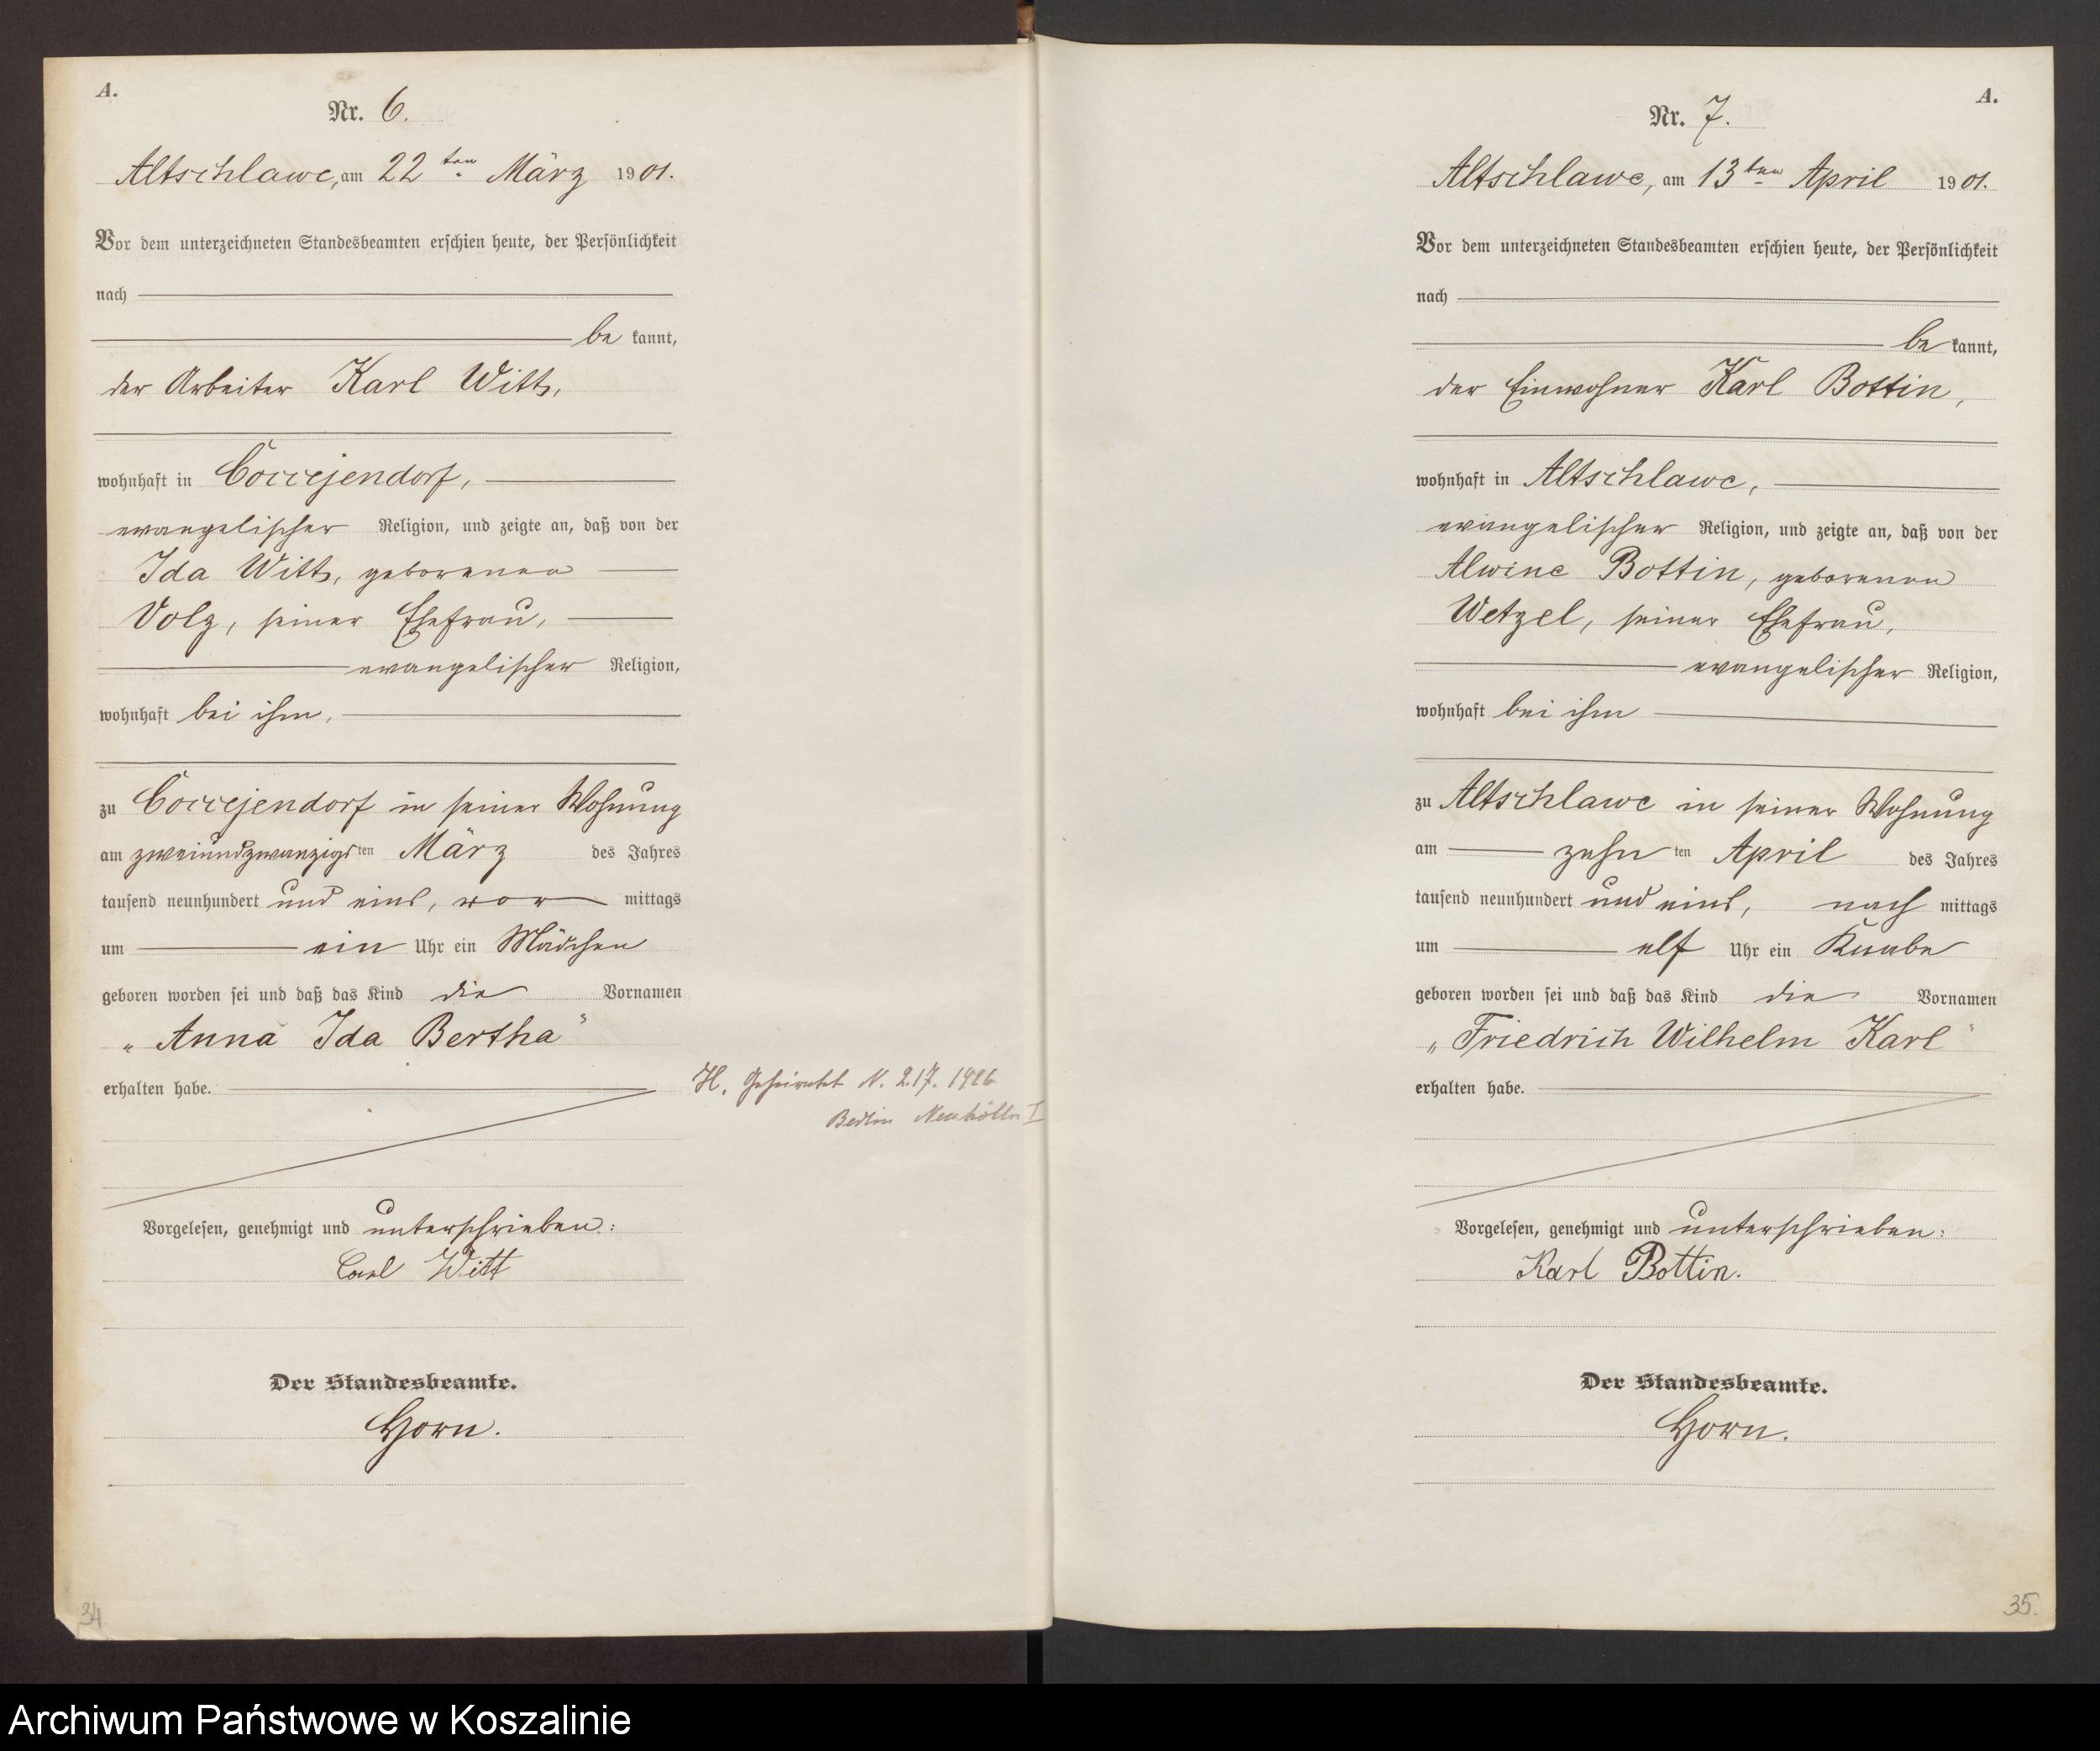 A.
Nr. 6.
Altschlawe, am 22ten März 1901.
Vor dem unterzeichneten Standesbeamten erschien heute, der Persönlichkeit
nach
be kannt,
der Arbeiter Karl Witt,
wohnhaft in Coccejendorf,
evangelischer Religion, und zeigte an, daß von der
Ida Witt, geborenen
Volz, seiner Ehefrau,
evangelischer Religion,
wohnhaft bei ihm,
zu Coccejendorf in seiner Wohnung
am zweiundzwanzigsten März des Jahres
tausend neunhundert und eins, vor mittags
um ein Uhr ein Mädchen
geboren worden sei und daß das Kind die Vornamen
„Anna Ida Bertha“
erhalten habe.
H. Geheiratet N. 217. 1926
Berlin Neukölln I
Vorgelesen, genehmigt und unterschrieben:
Carl Witt
Der Standesbeamte.
Horn.
34.
A.
Nr. 7.
Altschlawe, am 13ten April 1901.
Vor dem unterzeichneten Standesbeamten erschien heute, der Persönlichkeit
nach
be kannt,
der Einwohner Karl Bottin,
wohnhaft in Altschlawe,
evangelischer Religion, und zeigte an, daß von der
Alwine Bottin, geborenen
Wetzel, seiner Ehefrau,
evangelischer Religion,
wohnhaft bei ihm
zu Altschlawe in seiner Wohnung
am zehnten April des Jahres
tausend neunhundert und eins, nach mittags
um elf Uhr ein Knabe
geboren worden sei und daß das Kind die Vornamen
„Friedrich Wilhelm Karl“
erhalten habe.
Vorgelesen, genehmigt und unterschrieben:
Karl Bottin.
Der Standesbeamte.
Horn.
35.
Archiwum Państwowe w Koszalinie